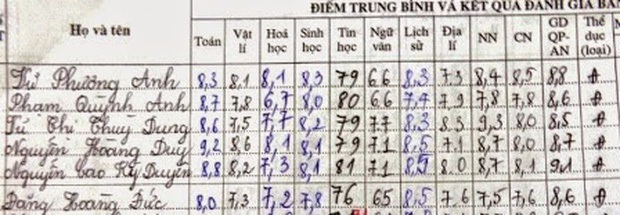 ĐIỂM TRUNG BÌNH VÀ KẾT QUẢ ĐÁNH GIÁ
Họ và tên Toán Vật lí Hoá học Sinh học Tin học Ngữ văn Lịch sử Địa lí NN CN GD QP-AN Thể dục (loại)
Từ Phương Anh 8,3 8,1 8,1 8,3 79 6.6 8,3 7.3 8,4 8,5 8,8 Đ
Phạm Quỳnh Anh 8,7 7,8 6,7 8,0 80 6.6 7,4 7.9 7,8 7,8 8,6 Đ
Từ Thị Thuỳ Dung 8,6 7,5 7,7 8,2 79 7.7 8,3 8.3 9,3 8,0 8,5 Đ
Nguyễn Hoàng Duy 9,2 8,6 8,1 8,1 79 7.1 8,5 7.1 8,7 8,0 8,7 Đ
Nguyễn Cao Kỳ Duyên 8,8 8,2 7,3 8,1 81 7.1 8,5 8.0 8,7 8,1 9,1 Đ
Đặng Hoàng Đức 8,0 7,3 7,2 7,8 76 65 8,5 7.6 7,5 7,6 8,6 Đ